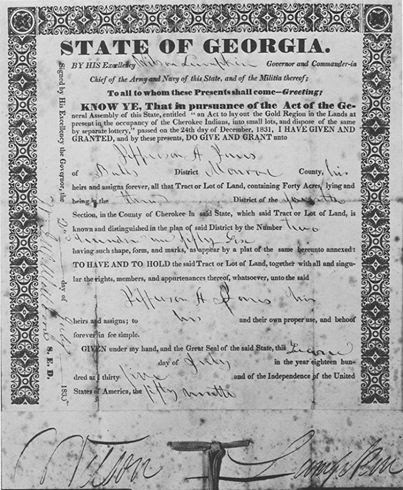 STATE OF GEORGIA.
BY HIS Excellency Wilson Lumpkin Governor and Commander-in
Chief of the Army and Navy of this State, and of the Militia thereof;
To all to whom these Presents shall come—Greeting;
KNOW YE, That in pursuance of the Act of the Ge-
neral Assembly of this State, entitled "an Act to lay out the Gold Region in the Lands at
present in the occupancy of the Cherokee Indians, into small lots, and dispose of the same
by separate lottery," passed on the 24th day of December, 1831, I HAVE GIVEN AND
GRANTED, and by these presents, DO GIVE AND GRANT unto
Jefferson H. Jones
of District Monroe County, his
heirs and assigns forever, all that Tract or Lot of Land, containing Forty Acres, lying and
being in the District of the
Section, in the County of Cherokee in said State, which said Tract or Lot of Land, is
known and distinguished in the plan of said District by the Number two
having such shape, form, and marks, as appear by a plat of the same hereunto annexed:
TO HAVE AND TO HOLD the said Tract or Lot of Land, together with all and singu-
lar the rights, members, and appurtenances thereof, whatsoever, unto the said
Jefferson H Jones his
heirs and assigns; to and their own proper use, and behoof
forever in fee simple.
GIVEN under my hand, and the Great Seal of the said State, this
day of July in the year eighteen hun-
dred and thirty five and of the Independence of the United
States of America, the fifty ninth
Signed by His Excellency the Governor, the
day of July 1835
S. E. D.
Wilson Lumpkin